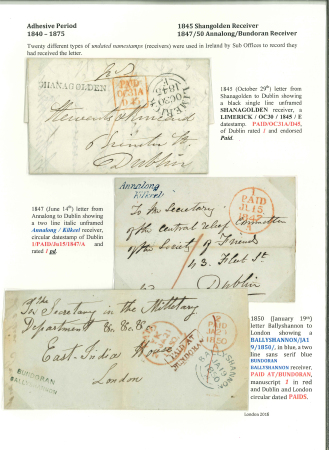 Adhesive Period
1840 – 1875
1845 Shangolden Receiver
1847/50 Annalong/Bundoran Receiver
Twenty different types of undated namestamps (receivers) were used in Ireland by Sub Offices to record they
had received the letter.
SHANAGOLDEN
PAID
Dublin
1845 (October 29th) letter from
Shanagolden to Dublin showing
a black single line unframed
SHANAGOLDEN receiver, a
LIMERICK / OC30 / 1845 / E
datestamp. PAID/OC31A/1845,
of Dublin rated 1 and endorsed
Paid.
1847 (June 14th) letter from
Annalong to Dublin showing
a two line italic unframed
Annalong / Kilkeel receiver,
circular datestamp of Dublin
1/PAID/Ju15/1847/A and
rated 1 pd.
Annalong
Kilkeel
To the Secretary
of the Central relief Committee
of the Society of Friends
43. Fleet St
Dublin
PAID
The Secretary in the Military
Department &c &c &c
East India House
London
PAID AT
BUNDORAN
BUNDORAN
BALLYSHANNON
BALLYSHANNON
1850 (January 19th)
letter Ballyshannon to
London showing a
BALLYSHANNON/JA1
9/1850/, in blue, a two
line sans serif blue
BUNDORAN
BALLYSHANNON receiver,
PAID AT/BUNDORAN,
manuscript 1 in red
and Dublin and London
circular dated PAIDS.
London 2018